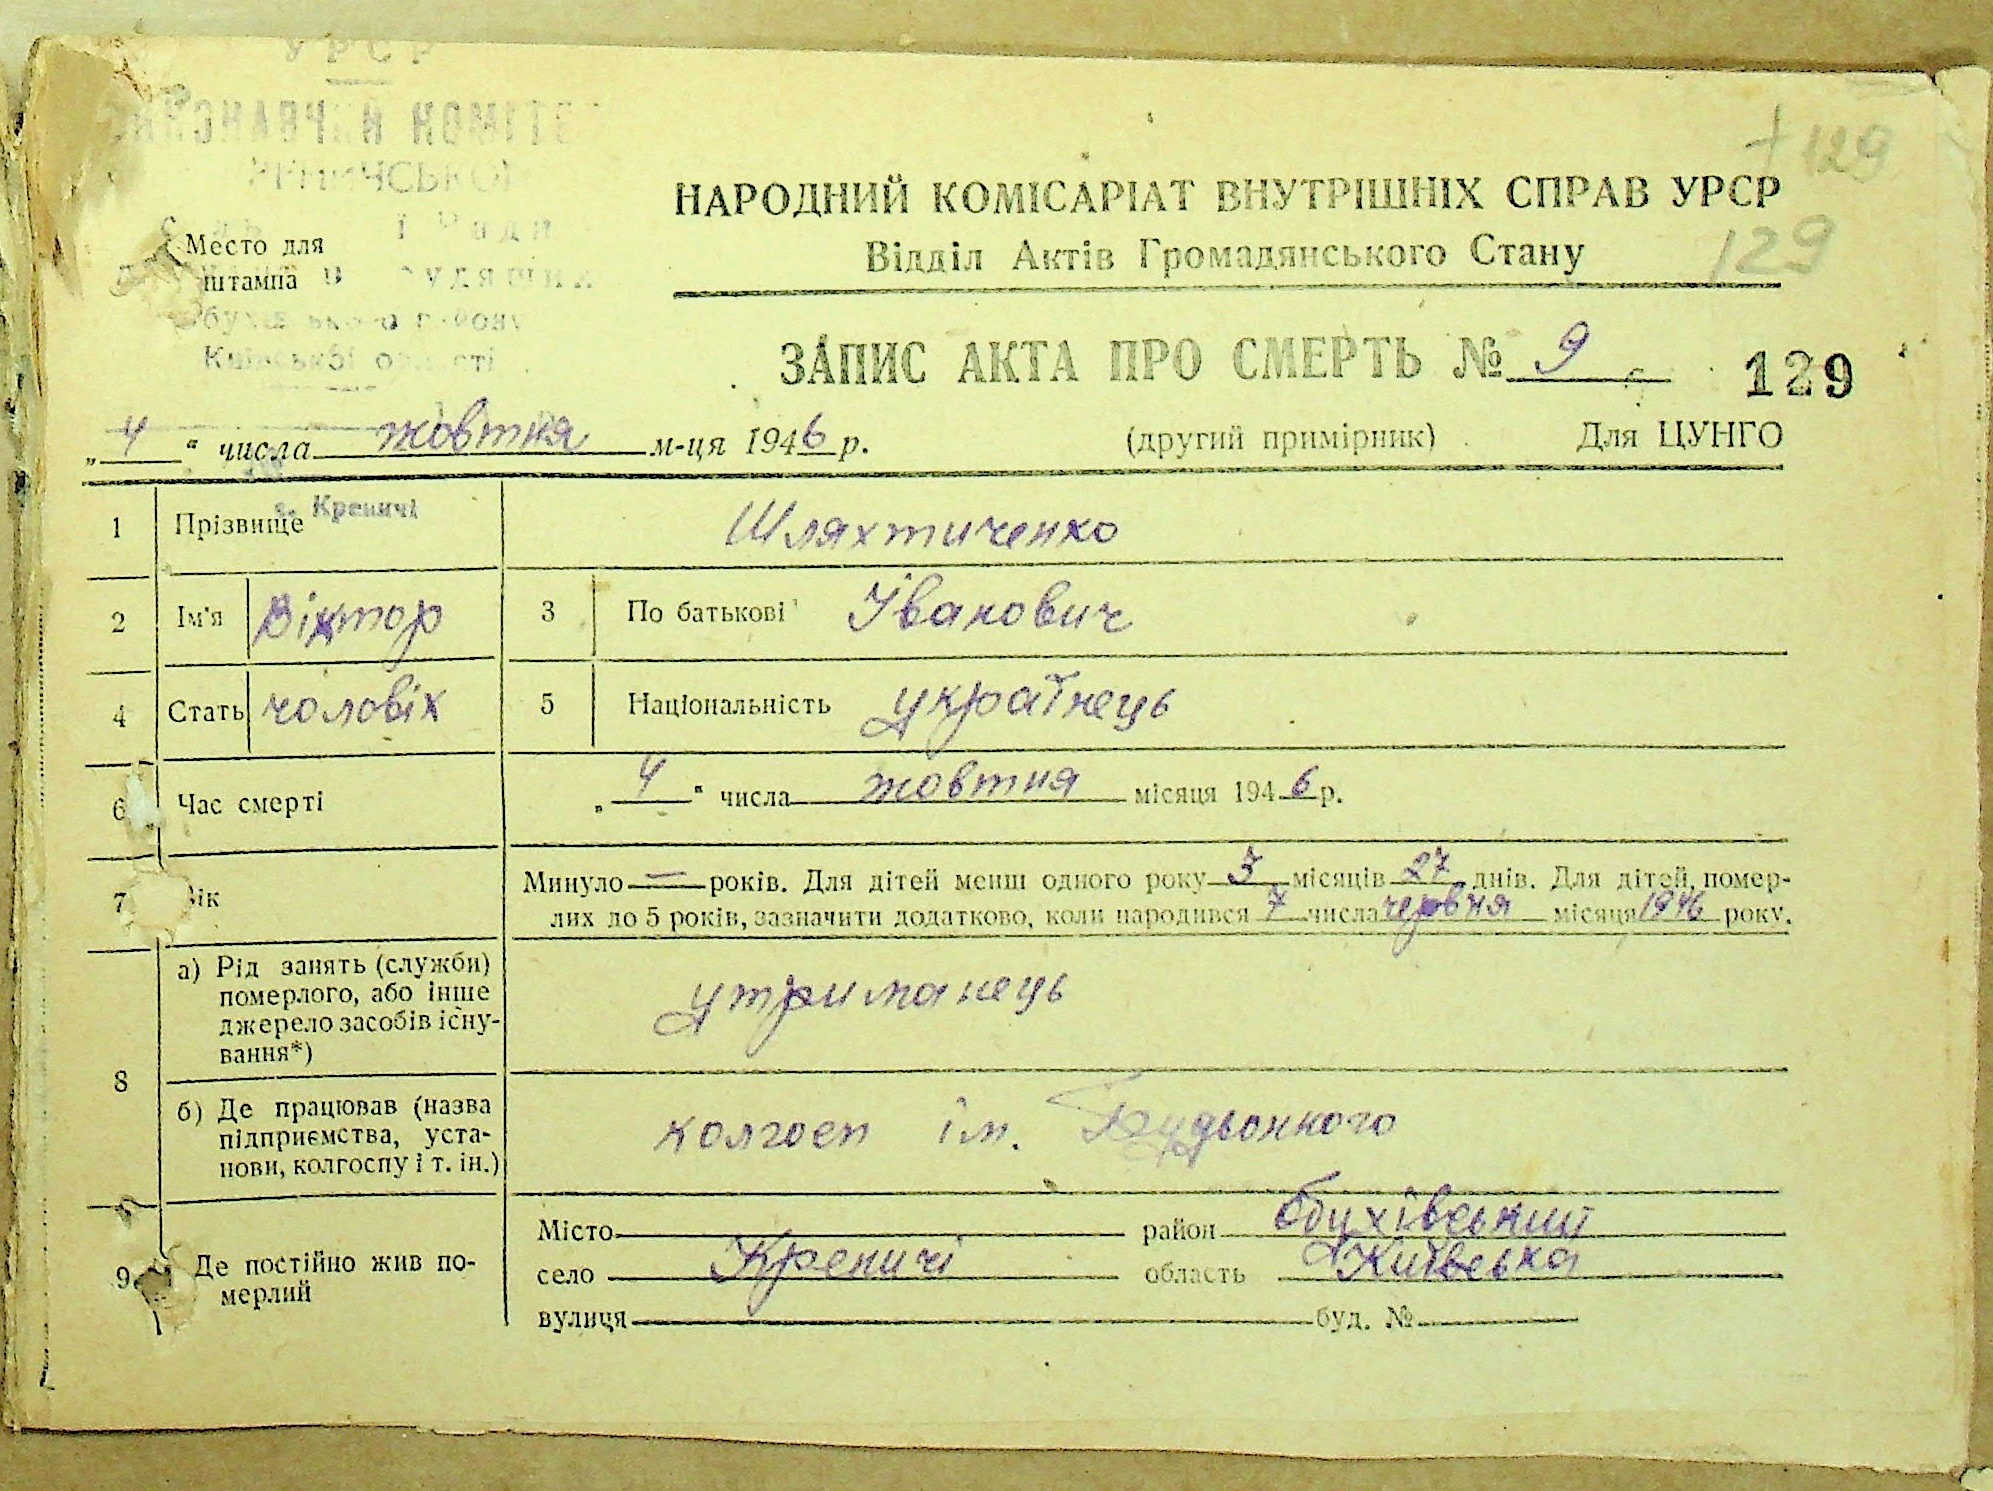 УРСР
ВИКОНАВЧИЙ КОМІТЕТ
Место для
штампа
Київської області
+129
НАРОДНИЙ КОМІСАРІАТ ВНУТРІШНІХ СПРАВ УРСР
Відділ Актів Громадянського Стану
129
ЗАПИС АКТА ПРО СМЕРТЬ № 9
129
„4“ числа жовтня м-ця 1946 р.
(другий примірник) Для ЦУНГО
с. Креничі
1 Прізвище Шляхтиченко
2 Ім'я Віктор 3 По батькові Іванович
4 Стать чоловік 5 Національність українець
6 Час смерті „4“ числа жовтня місяця 1946 р.
7 Вік Минуло — років. Для дітей менш одного року 3 місяців 27 днів. Для дітей, помер-
лих до 5 років, зазначити додатково, коли народився 7 числа червня місяця 1946 року.
8 а) Рід занять (служби)
померлого, або інше
джерело засобів існу-
вання*)
утриманець
б) Де працював (назва
підприємства, уста-
нови, колгоспу і т. ін.)
колгосп ім. Будьонного
9 Де постійно жив по-
мерлий
Місто район Обухівський
село Креничі область Київська
вулиця буд. №